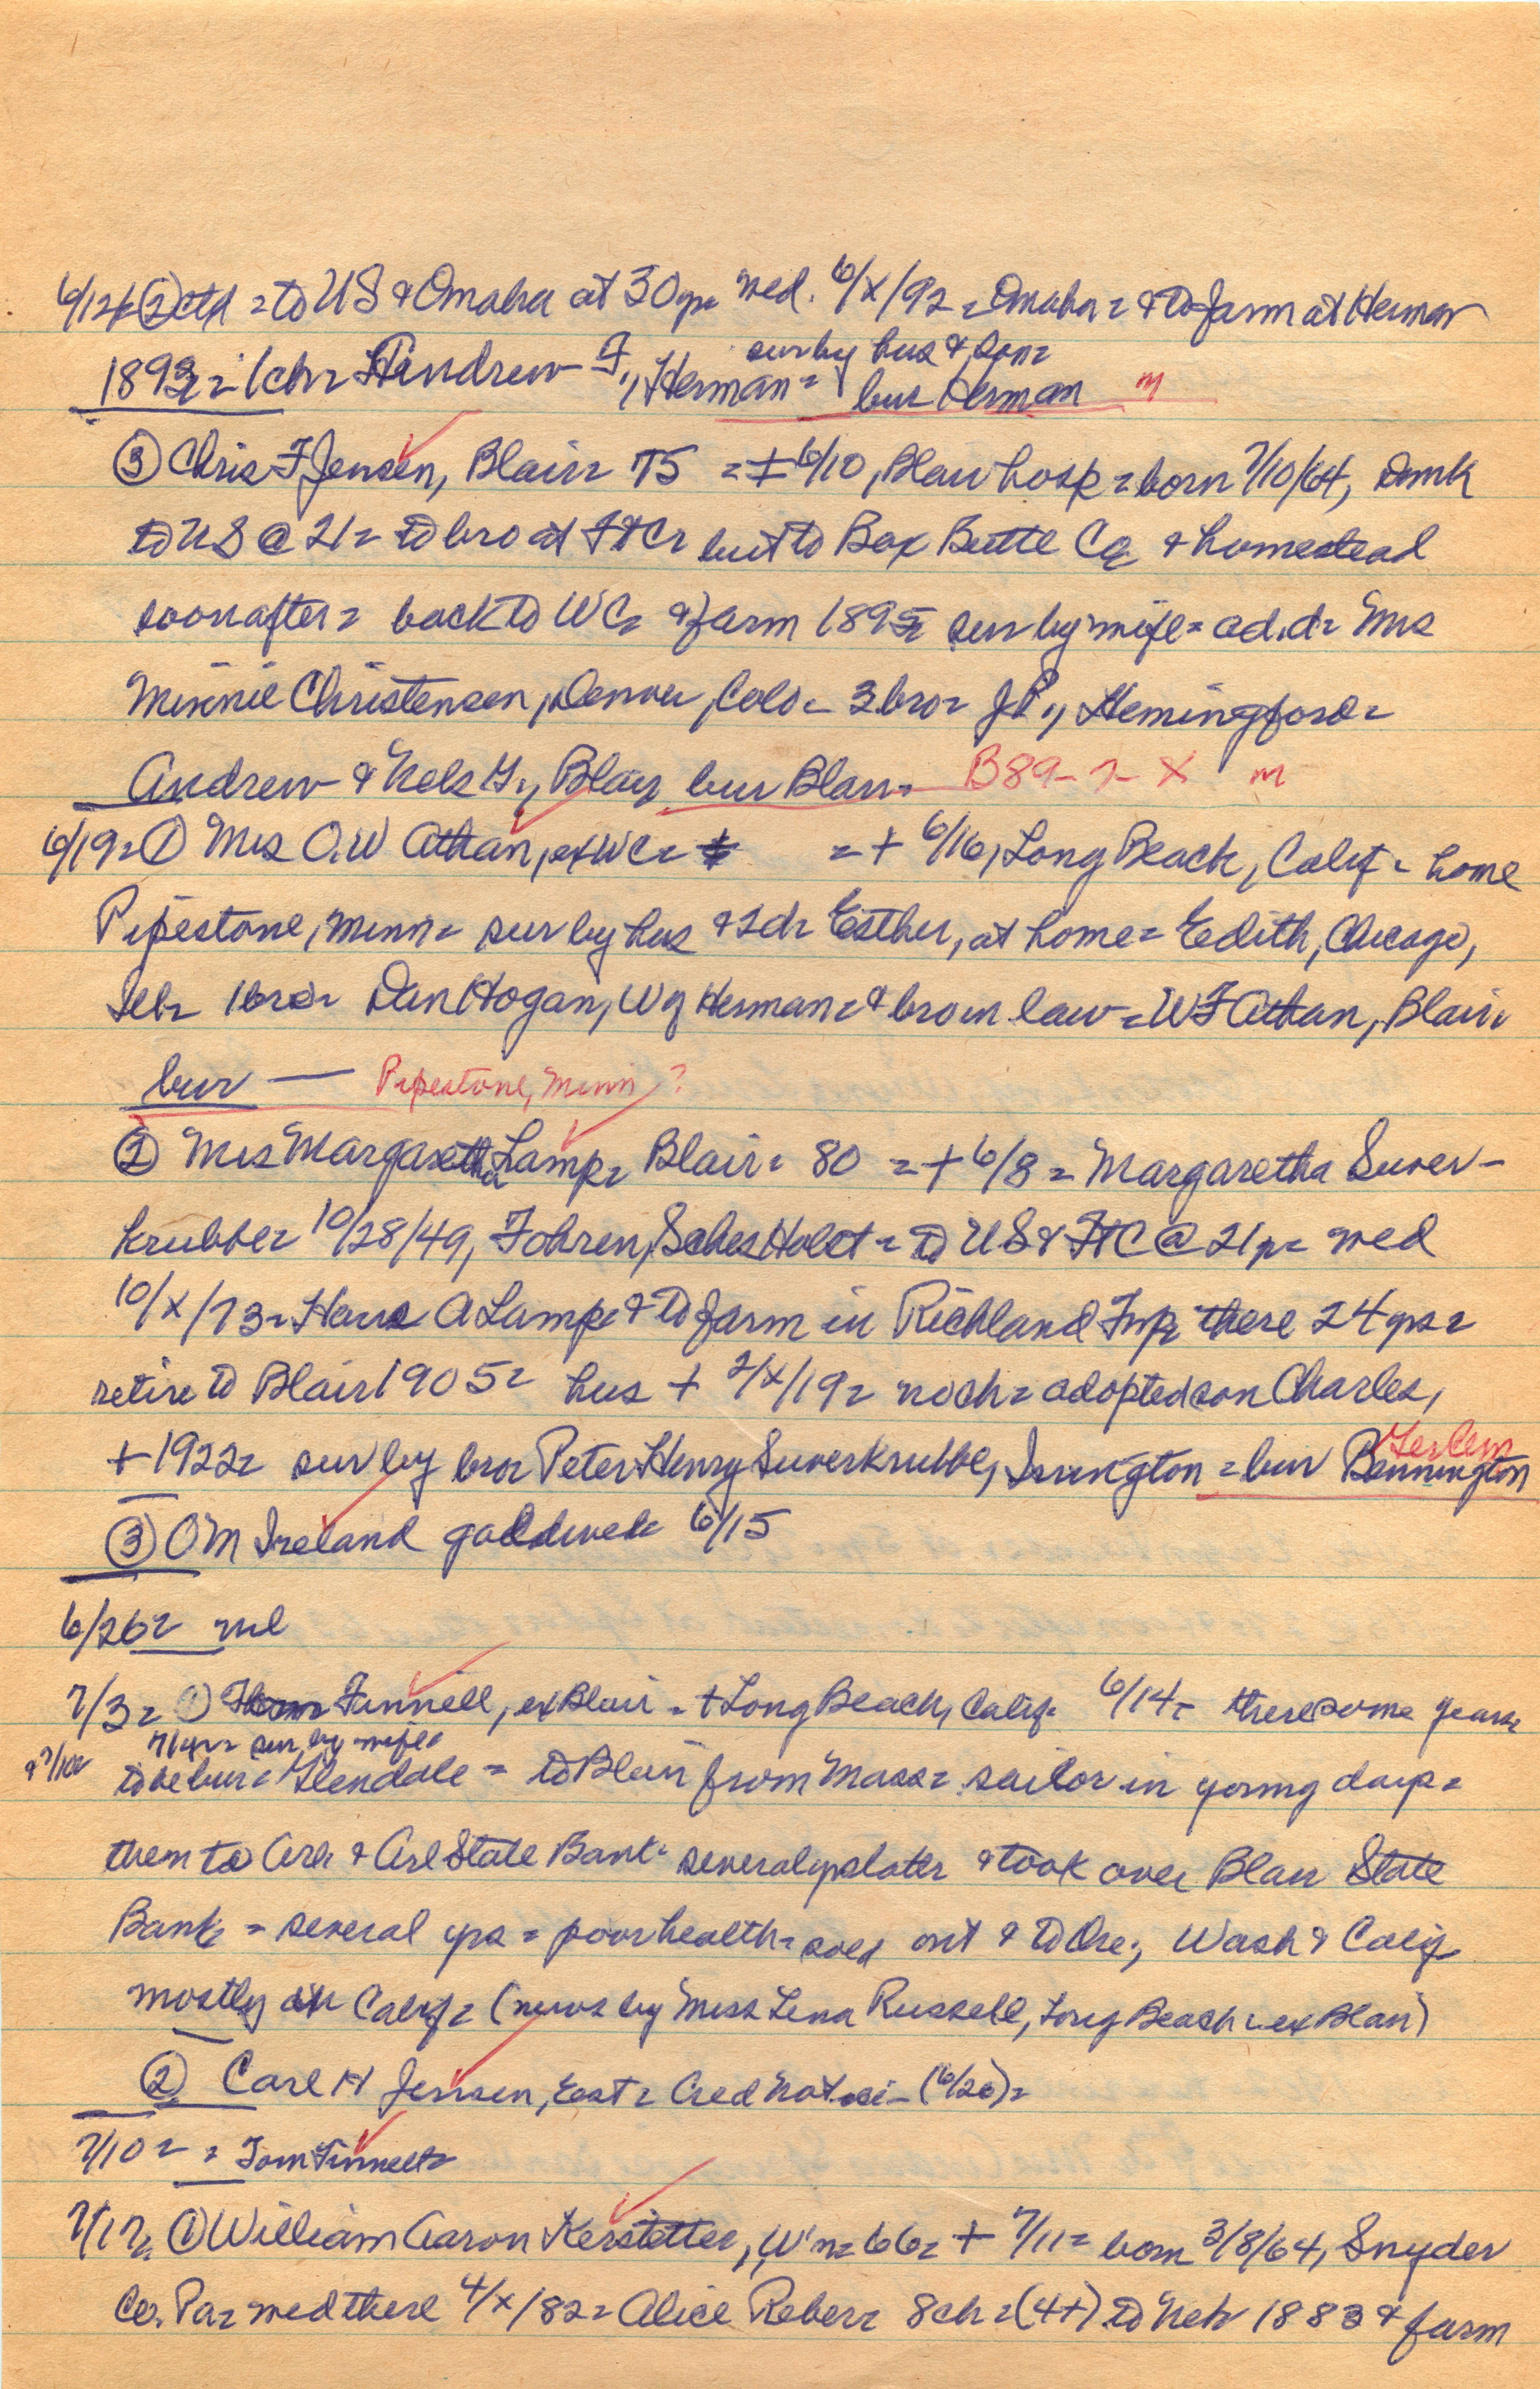 6/12 ② ctd = to US & Omaha at 30 yr= wed. 6/X/92 = Omaha = & to farm at Herman
1893 = 1ch= Andrew F., Herman = sur by hus & son= bur Herman m
③ Chris F Jensen, Blair= 75 = + 6/10, Blair hosp = born 7/10/64, Dmk
to US @ 21= to bro at FtC= but to Box Butte Co & homestead
soon after= back to WC= & farm 1895= sur by wife= ad.d= Mrs
Minnie Christensen, Denver, Colo= 3 bro= J P., Hemingford=
Andrew & Nels H., Blair bur Blair= B89-7-X m
6/19= ① Mrs O.W Athan, ex WC= = + 6/16, Long Beach, Calif = home
Pipestone, Minn= sur by hus & 2d= Esther, at home= Edith, Chicago,
Ill= 1bro= Dan Hogan, W of Herman= & bro in law= W F Athan, Blair.
bur — Pipestone, Minn ?
② Mrs Margaretha Lamp= Blair= 80 = + 6/8 = Margaretha Suver-
krubbe= 10/28/49, Fohren, Schles Holst = to US & FtC @ 21 yr= wed
10/X/73= Hans A Lamp= & to farm in Richland Twp= there 24 yrs=
retire to Blair 1905= hus + 2/X/19= no ch= adopted son Charles,
+ 1922= sur by bro= Peter Henry Suverkrubbe, Irvington = bur Bennington
③ O M Ireland gold wed= 6/15
6/26= nil
7/3= ① Finnell, ex Blair = + Long Beach, Calif= 6/14= there some years
71 yr= sur by wife=
& 7/10= to be bur= Glendale = to Blair from Mass= sailor in young days=
them to Arl= & Arl State Bank= several yrs later & took over Blair State
Bank = several yrs = poor health= sold out & to Ore, Wash & Calif=
mostly in Calif= (news by Miss Lena Russell, Long Beach = ex Blair)
② Carl H Jensen, Est= Cred Not= (6/26)=
7/10 = = Tom Finnell=
7/17= ① William Aaron Kerstetter, W'n= 66= + 7/11= born 3/8/64, Snyder
Co. Pa= wed there 4/X/82= Alice Reber= 8ch = (4+) to Neb 1883 & farm